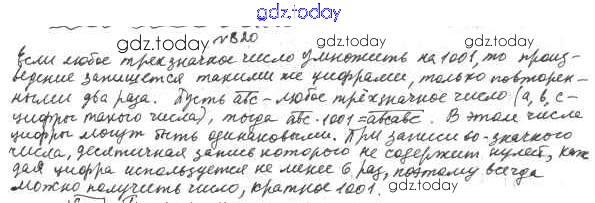 gdz.today
№820
Если любое трехзначное число умножить на 1001, то произ-
ведение запишется такими же цифрами, только повторен-
ными два раза. Пусть abc - любое трёхзначное число (a, b, c -
цифры такого числа), тогда abc · 1001 = abcabc. В этом числе
цифры могут быть одинаковыми. При записи 60-значного
числа, десятичная запись которого не содержит нулей, каж
дая цифра используется не менее 6 раз, поэтому всегда
можно получить число, кратное 1001.
gdz.today gdz.today
gdz.today gdz.today
gdz.today gdz.today
gdz.today gdz.today